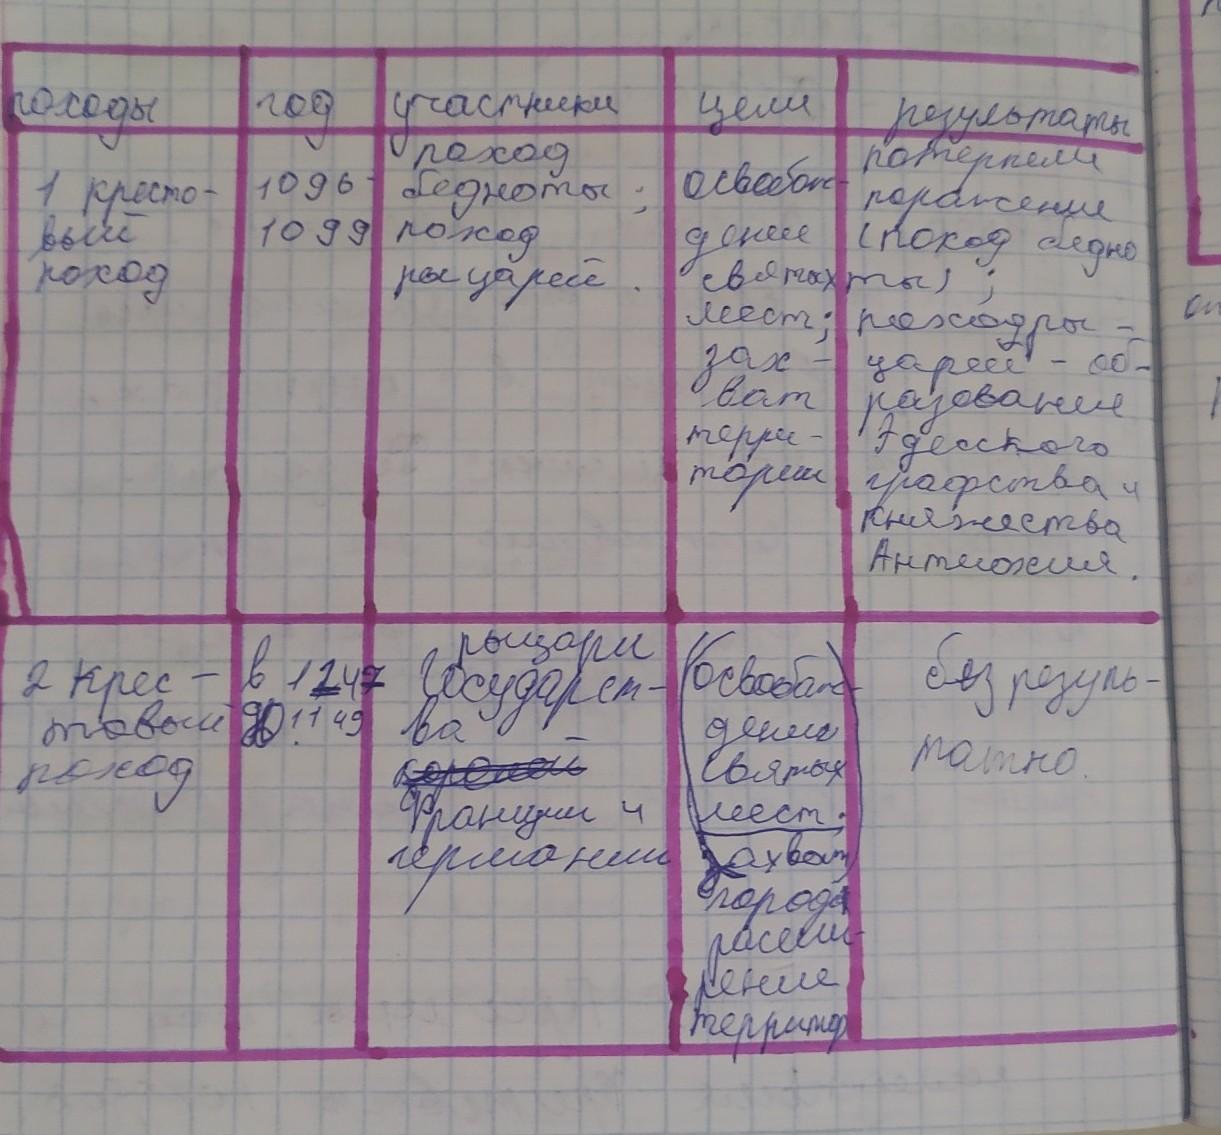 походы
год
участники
цели
результаты
1 кресто-
вый
поход
1096-
1099
поход
бедноты;
поход
рыцарей.
освобож-
дение
святых
мест;
зах-
ват
терри-
тории
потерпели
поражение
(поход бедно
ты);
походры-
царей - об-
разование
Эдесского
графства и
княжества
Антиохия.
2 крес-
товый
поход
в 1247
до 1149
рыцари
государст-
ва
Франции и
германии
(освобож-
дение
святых
мест;
захват)
города
расши-
рение
территор
без резуль-
татно.